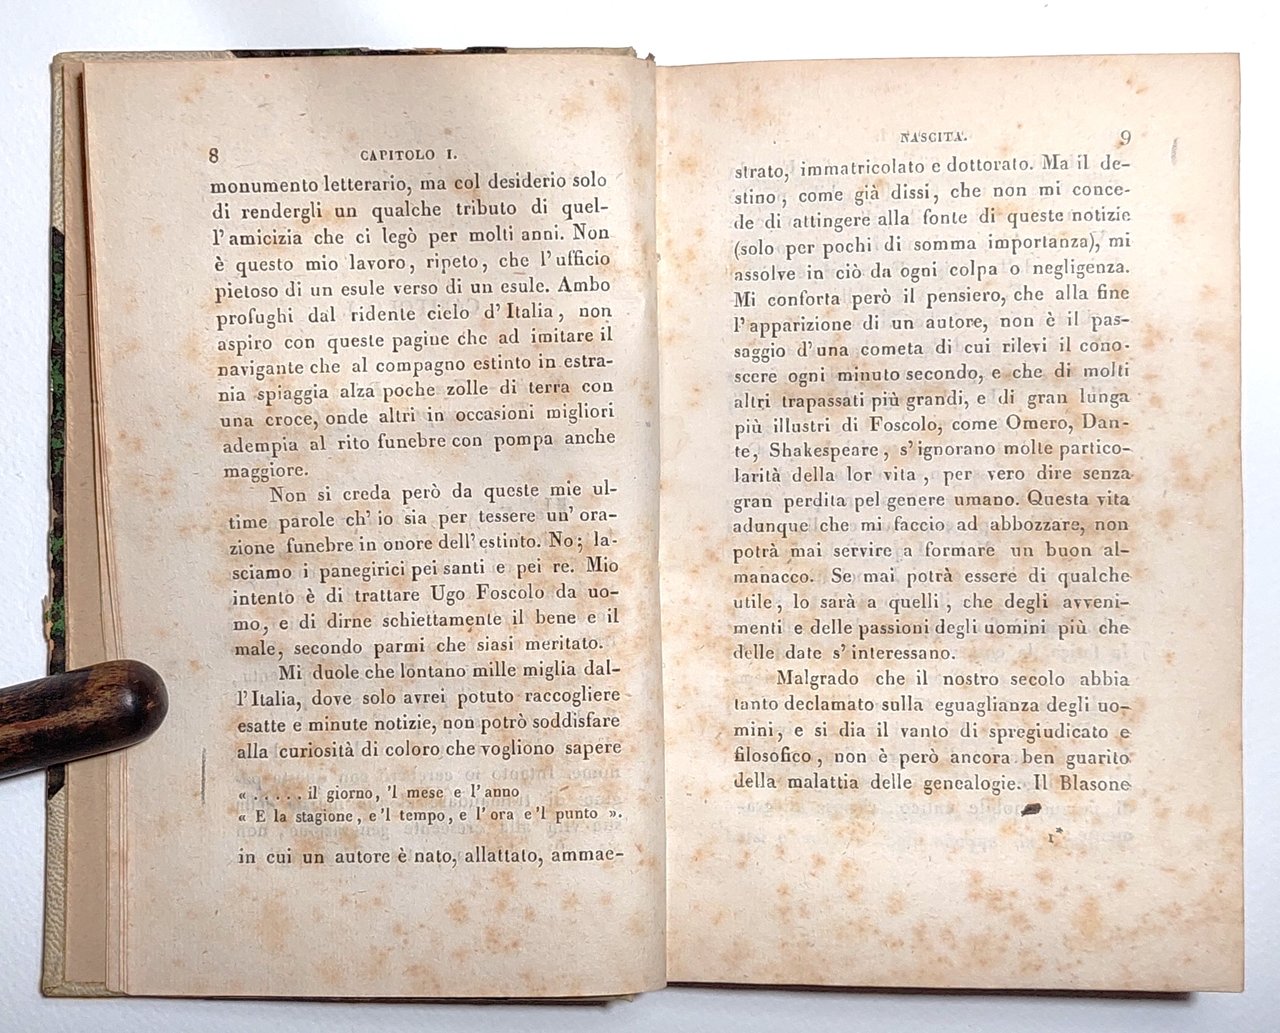 8 CAPITOLO I.
monumento letterario, ma col desiderio solo
di rendergli un qualche tributo di quel-
l'amicizia che ci legò per molti anni. Non
è questo mio lavoro, ripeto, che l'ufficio
pietoso di un esule verso di un esule. Ambo
profughi dal ridente cielo d'Italia, non
aspiro con queste pagine che ad imitare il
navigante che al compagno estinto in estra-
nia spiaggia alza poche zolle di terra con
una croce, onde altri in occasioni migliori
adempia al rito funebre con pompa anche
maggiore.
Non si creda però da queste mie ul-
time parole ch'io sia per tessere un'ora-
zione funebre in onore dell'estinto. No; la-
sciamo i panegirici pei santi e pei re. Mio
intento è di trattare Ugo Foscolo da uo-
mo, e di dirne schiettamente il bene e il
male, secondo parmi che siasi meritato.
Mi duole che lontano mille miglia dal-
l'Italia, dove solo avrei potuto raccogliere
esatte e minute notizie, non potrò soddisfare
alla curiosità di coloro che vogliono sapere
« . . . . . il giorno, 'l mese e l'anno
« E la stagione, e 'l tempo, e l'ora e 'l punto ».
in cui un autore è nato, allattato, ammae-
NASCITA. 9
strato, immatricolato e dottorato. Ma il de-
stino, come già dissi, che non mi conce-
de di attingere alla fonte di queste notizie
(solo per pochi di somma importanza), mi
assolve in ciò da ogni colpa o negligenza.
Mi conforta però il pensiero, che alla fine
l'apparizione di un autore, non è il pas-
saggio d'una cometa di cui rilevi il cono-
scere ogni minuto secondo, e che di molti
altri trapassati più grandi, e di gran lunga
più illustri di Foscolo, come Omero, Dan-
te, Shakespeare, s'ignorano molte partico-
larità della lor vita, per vero dire senza
gran perdita pel genere umano. Questa vita
adunque che mi faccio ad abbozzare, non
potrà mai servire a formare un buon al-
manacco. Se mai potrà essere di qualche
utile, lo sarà a quelli, che degli avveni-
menti e delle passioni degli uomini più che
delle date s'interessano.
Malgrado che il nostro secolo abbia
tanto declamato sulla eguaglianza degli uo-
mini, e si dia il vanto di spregiudicato e
filosofico, non è però ancora ben guarito
della malattia delle genealogie. Il Blasone
1*